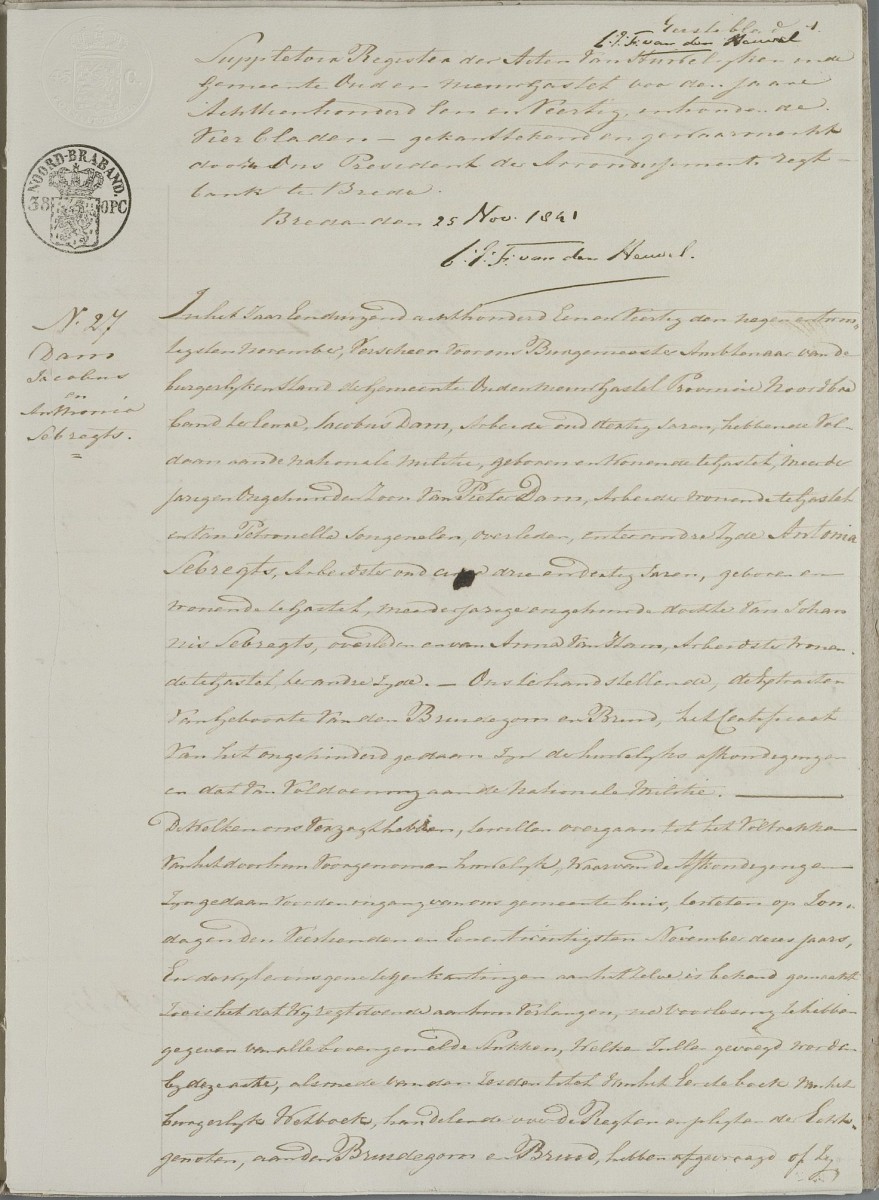 Eerste blad 1.
C.J.F. van den Heuvel
Suppletoir Register der Acten van Huwelijken in de
Gemeente Oud en Nieuw Gastel voor den jaare
Achttienhonderd Een en Veertig, inhoudende
Vier bladen – gekanttekend en gewaarmerkt
door Ons President der Arrondissements regt-
bank te Breda.
Breda den 25 Nov. 1841
C.J.F. van den Heuvel.
NOORD-BRABAND.
38 OPC
N. 27
Dam
Jacobus
en
Anthonia
Sebregts.
In het Jaar Eenduizend achthonderd Een en Veertig den negen entwin-
tigsten November, Verscheen voor ons Burgemeester Ambtenaar van de
burgerlijken Stand der Gemeente Oud en Nieuw Gastel Provincie Noordbra
band ter Eenre, Jacobus Dam, Arbeider oud dertig Jaren, hebbende Vol-
daan aan de nationale militie, geboren en Wonende te Gastel, meerder
jarigen Ongehuwden Zoon Van Pieter Dam, Arbeider wonende te Gastel
en Van Petronella Jongenelen, overleden, en ter andre Zyde Antonia
Sebregts, Arbeidster oud drie en dertig Jaren, geboren en
wonende te Gastel, meerderjarige ongehuwde dochter Van Johan
nis Sebregts, overleden en van Anna Van Ham, Arbeidster Wonen-
de te Gastel, ter andre Zyde. – Ons ter hand stellende, de Extracten
Van Geboorte Van den Bruidegom en Bruid, het Certificaat
Van het ongehinderd gedaan zyn der huwelyks afkondigingen
en dat Van Voldoening aan de Nationale Militie.
Dewelken ons Verzogt hebben, te willen overgaan tot het Voltrekken
Van het door hun Voorgenomen huwelyk, Waarvan de Afkondigingen
Zyn gedaan Voor den ingang van ons gemeente huis, te weten op Zon-
dagen den Veertienden en Eenentwintigsten November dezes jaars,
En dewyl er ons geene tegenkantingen aan het Zelve is bekend gemaakt
Zoo is het dat Wy regtdoende aan hun Verlangen, na Voorlesing te hebben
gegeven van alle bovengemelde Stukken, Welke Zullen gevoegd worden
by deze acte, alsmede van den Zesden titel Van het Eerste boek Van het
burgerlyk Wetboek, handelende over De Regten en pligten der Echt-
genoten, aan den Bruidegom en Bruid, hebben afgevraagd of Zy